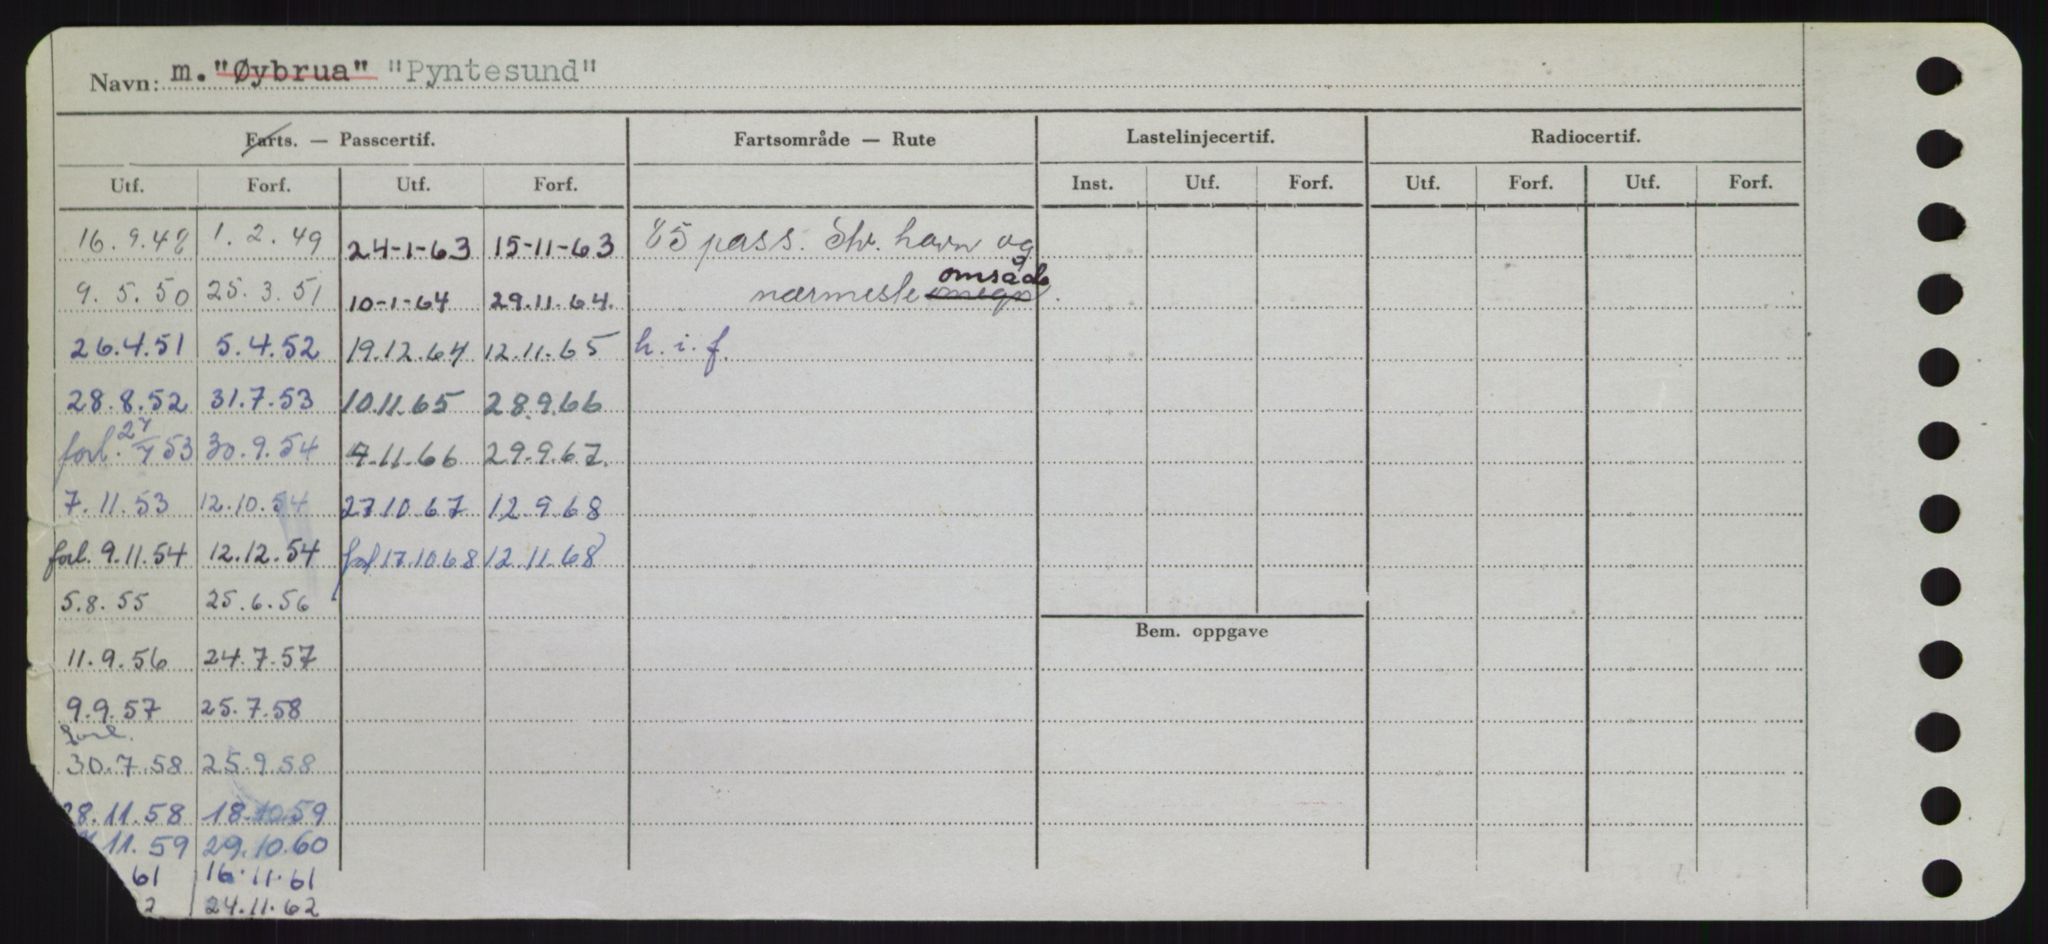 Navn: m. "Øybrua" "Pyntesund"
Farts. — Passcertif. Fartsområde — Rute Lastelinjecertif. Radiocertif.
Utf. Forf. Utf. Forf. Inst. Utf. Forf. Utf. Forf. Utf. Forf.
16.9.48 1.2.49 24-1-63 15-11-63 85 pass. havn og
9.5.50 25.3.51 10-1-64 29.11.64. nærmeste omegn område
26.4.51 5.4.52 19.12.64 12.11.65 h.i.f.
28.8.52 31.7.53 10.11.65 28.9.66
forl. 27/7 53 30.9.54 9.11.66 29.9.67.
7.11.53 12.10.54 27.10.67 12.9.68
forl. 9.11.54 12.12.54 forl 17.10.68 12.11.68
5.8.55 25.6.56
Bem. oppgave
11.9.56 24.7.57
9.9.57 25.7.58
forl.
30.7.58 25.9.58
28.11.58 18.10.59
11.59 29.10.60
61 16.11.61
2 24.11.62